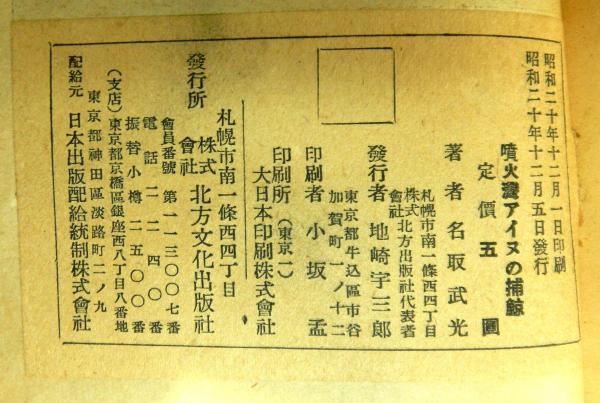 昭和二十年十二月一日印刷
昭和二十年十二月五日發行
噴火灣アイヌの捕鯨
定價 五圓
著者 名取武光
札幌市南一條西四丁目
株式會社北方出版社代表者
發行者 地崎宇三郎
東京都牛込區市谷
加賀町一ノ十二
印刷者 小坂孟
印刷所 (東京一)
大日本印刷株式會社
札幌市南一條西四丁目
發行所 株式會社 北方文化出版社
會員番號 第一一三〇〇七番
電話二二四〇番
振替小樽二五〇〇番
(支店)東京都京橋區銀座西八丁目八番地
東京都神田區淡路町二ノ九
配給元 日本出版配給統制株式會社